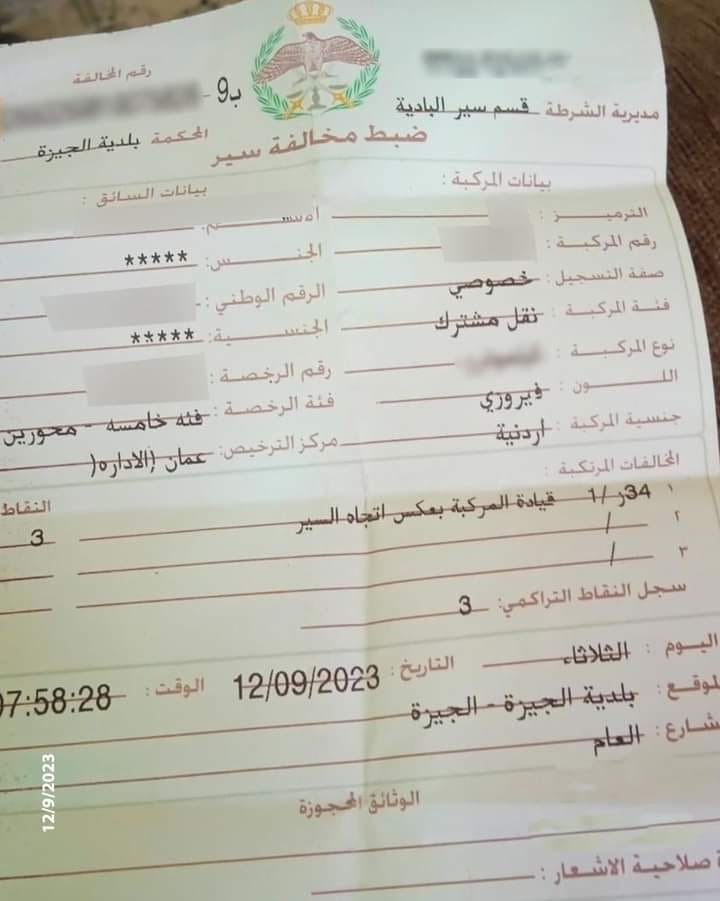 رقم المخالفة
ب9 -
مديرية الشرطة قسم سير البادية
المحكمة بلدية الجيزة
ضبط مخالفة سير
بيانات المركبة :
بيانات السائق :
الترميـــز :
رقم المركبة :
الجنـــس: *****
صفة التسجيل: خصوصي
الرقم الوطني :
فئة المركبة : نقل مشترك
الجنســـية: *****
نوع المركبة :
رقم الرخصة :
اللـــون : فيروزي
فئة الرخصة : فئه خامسه - محورين
جنسية المركبة : اردنية
مركز الترخيص: عمان (الاداره(
المخالفات المرتكبة :
النقاط
١ 34ر /1 قيادة المركبة بعكس اتجاه السير 3
٢ /
٣ /
سجل النقاط التراكمي: 3
اليوم : الثلاثاء التاريخ : 12/09/2023 الوقت : 07:58:28
لموقع: بلدية الجيزة - الجيزة
شارع: العام
الوثائق المحجوزة
صلاحية الاشعار :
12/9/2023